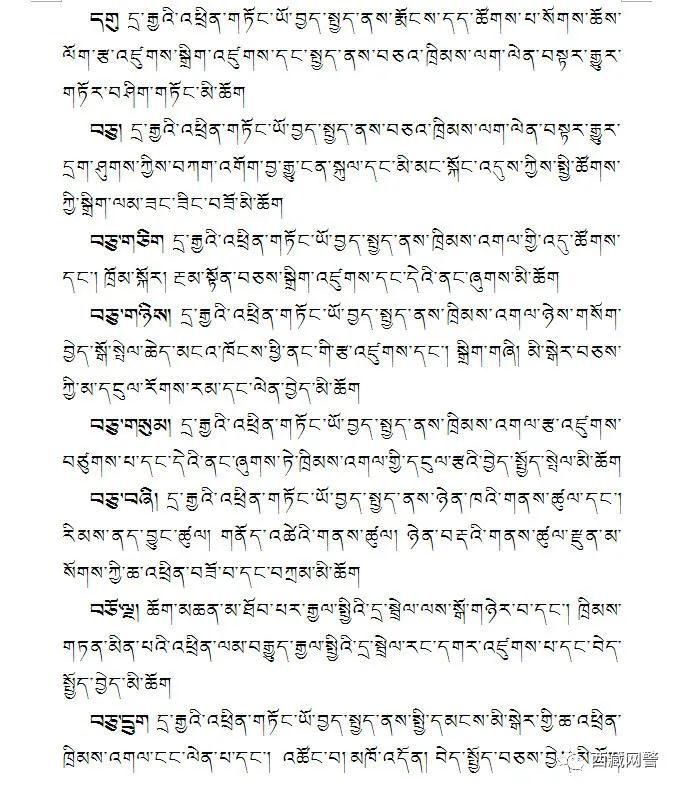 དགུ དྲ་རྒྱའི་འཕྲིན་གཏོང་ཡོ་བྱད་སྤྱད་ནས་རྨོངས་དད་ཚོགས་པ་སོགས་ཆོས་
ལོག་རྩ་འཛུགས་སྒྲིག་འཛུགས་དང་སྤྱད་ནས་བཅའ་ཁྲིམས་ལག་ལེན་བསྟར་རྒྱུར་
གཏོར་བཤིག་གཏོང་མི་ཆོག
བཅུ། དྲ་རྒྱའི་འཕྲིན་གཏོང་ཡོ་བྱད་སྤྱད་ནས་བཅའ་ཁྲིམས་ལག་ལེན་བསྟར་རྒྱུར་
དྲག་ཤུགས་ཀྱིས་བཀག་འགོག་བྱ་རྒྱུ་ངན་སྐུལ་དང་མི་མང་སྐོང་འདུས་ཀྱིས་སྤྱི་ཚོགས་
ཀྱི་སྒྲིག་ལམ་ཟང་ཟིང་བཟོ་མི་ཆོག
བཅུ་གཅིག དྲ་རྒྱའི་འཕྲིན་གཏོང་ཡོ་བྱད་སྤྱད་ནས་ཁྲིམས་འགལ་གྱི་འདུ་ཚོགས་
དང་། ཁྲོམ་སྐོར། ངམ་སྟོན་བཅས་སྒྲིག་འཛུགས་དང་དེའི་ནང་ཞུགས་མི་ཆོག
བཅུ་གཉིས། དྲ་རྒྱའི་འཕྲིན་གཏོང་ཡོ་བྱད་སྤྱད་ནས་ཁྲིམས་འགལ་ཉེས་གསོག་
བྱེད་སྒོ་སྤེལ་ཆེད་མངའ་ཁོངས་ཕྱི་ནང་གི་རྩ་འཛུགས་དང་། སྒྲིག་གཞི། མི་སྒེར་བཅས་
ཀྱི་མ་དངུལ་རོགས་རམ་དང་ལེན་བྱེད་མི་ཆོག
བཅུ་གསུམ། དྲ་རྒྱའི་འཕྲིན་གཏོང་ཡོ་བྱད་སྤྱད་ནས་ཁྲིམས་འགལ་རྩ་འཛུགས་
བཙུགས་པ་དང་དེའི་ནང་ཞུགས་ཏེ་ཁྲིམས་འགལ་གྱི་དངུལ་རྩའི་བྱེད་སྤྱོད་སྤེལ་མི་ཆོག
བཅུ་བཞི། དྲ་རྒྱའི་འཕྲིན་གཏོང་ཡོ་བྱད་སྤྱད་ནས་ཉེན་ཁའི་གནས་ཚུལ་དང་།
རིམས་ནད་བྱུང་ཚུལ། གནོད་འཚེའི་གནས་ཚུལ། ཉེན་བརྡའི་གནས་ཚུལ་རྫུན་མ་
སོགས་ཀྱི་ཆ་འཕྲིན་བཟོ་བ་དང་བཀྲམ་མི་ཆོག
བཅོ་ལྔ། ཆོག་མཆན་མ་ཐོབ་པར་རྒྱལ་སྤྱིའི་དྲ་སྦྲེལ་ལས་སྒོ་གཉེར་བ་དང་། ཁྲིམས་
གཏན་མིན་པའི་འཕྲིན་ལམ་བརྒྱུད་རྒྱལ་སྤྱིའི་དྲ་སྦྲེལ་རང་དགར་འཛུགས་པ་དང་བེད་
སྤྱོད་བྱེད་མི་ཆོག
བཅུ་དྲུག དྲ་རྒྱའི་འཕྲིན་གཏོང་ཡོ་བྱད་སྤྱད་ནས་སྤྱི་དམངས་མི་སྒེར་གྱི་ཆ་འཕྲིན་
ཁྲིམས་འགལ་ངང་ལེན་པ་དང་། འཚོང་བ། མཁོ་འདོན། བེད་སྤྱོད་བཅས་
西藏网警